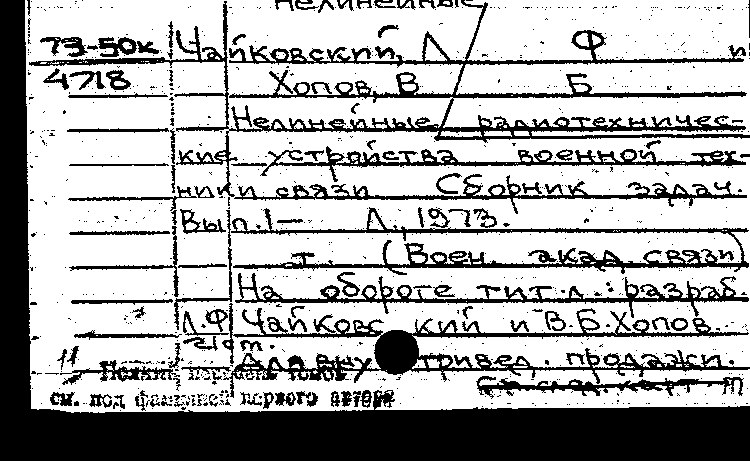 Нелинейные
73-50к Чайковский, Л Ф и
4718 Хопов, В Б
Нелинейные радиотехничес-
кие устройства военной тех-
ники связи Сборник задач.
Вып.1— Л., 1973.
т. (Воен. акад. связи)
На обороте тит.л.: разраб.
Л.Ф Чайковский и В.Б.Хопов.
Для вну тривед. продажи.
11 Полный перечень томов
см. под фамилией первого автора
См. след. карт. т